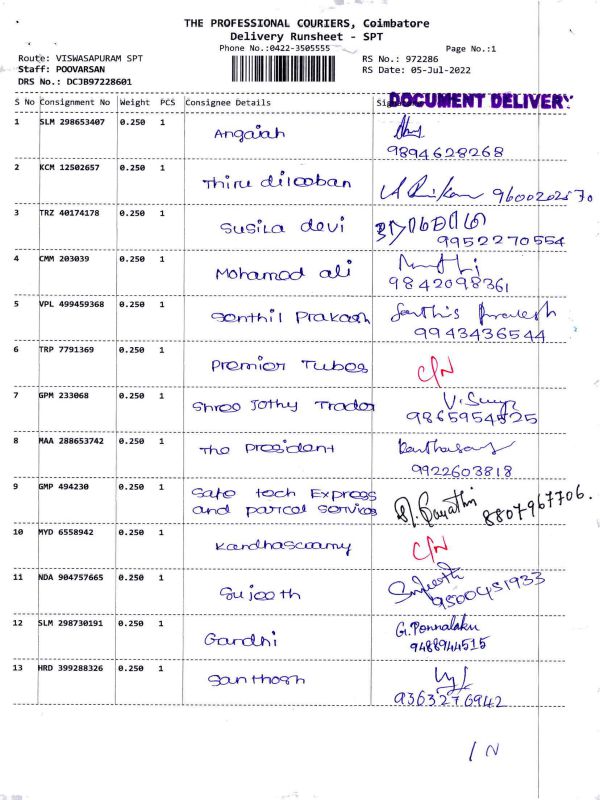 THE PROFESSIONAL COURIERS, Coimbatore
Delivery Runsheet - SPT
Phone No.:0422-3505555 Page No.:1
Route: VISWASAPURAM SPT RS No.: 972286
Staff: POOVARSAN RS Date: 05-Jul-2022
DRS No.: DCJB97228601
DOCUMENT DELIVERY
S No Consignment No Weight PCS Consignee Details
1 SLM 298653407 0.250 1 Angaiah
9894628268
2 KCM 12502657 0.250 1 Thiru dileeban
3 TRZ 40174178 0.250 1 Susila devi
9952270554
4 CMM 203039 0.250 1 Mohamed ali
9842098361
5 VPL 499459368 0.250 1 Senthil Prakash
9943436544
6 TRP 7791369 0.250 1 Premier Tubes C/N
7 GPM 233068 0.250 1 Shree Jothy Trader
9865954525
8 MAA 288653742 0.250 1 The President
9922603818
9 GMP 494230 0.250 1 Safe tech Express
and parcel services 8807967706.
10 MYD 6558942 0.250 1 Kandhasamy C/N
11 NDA 904757665 0.250 1 Sujeeth Sujeeth
9500451933
12 SLM 298730191 0.250 1 Gandhi G. Ponnalaku
9488944515
13 HRD 399288326 0.250 1 Santhosh
9363276942
/ N